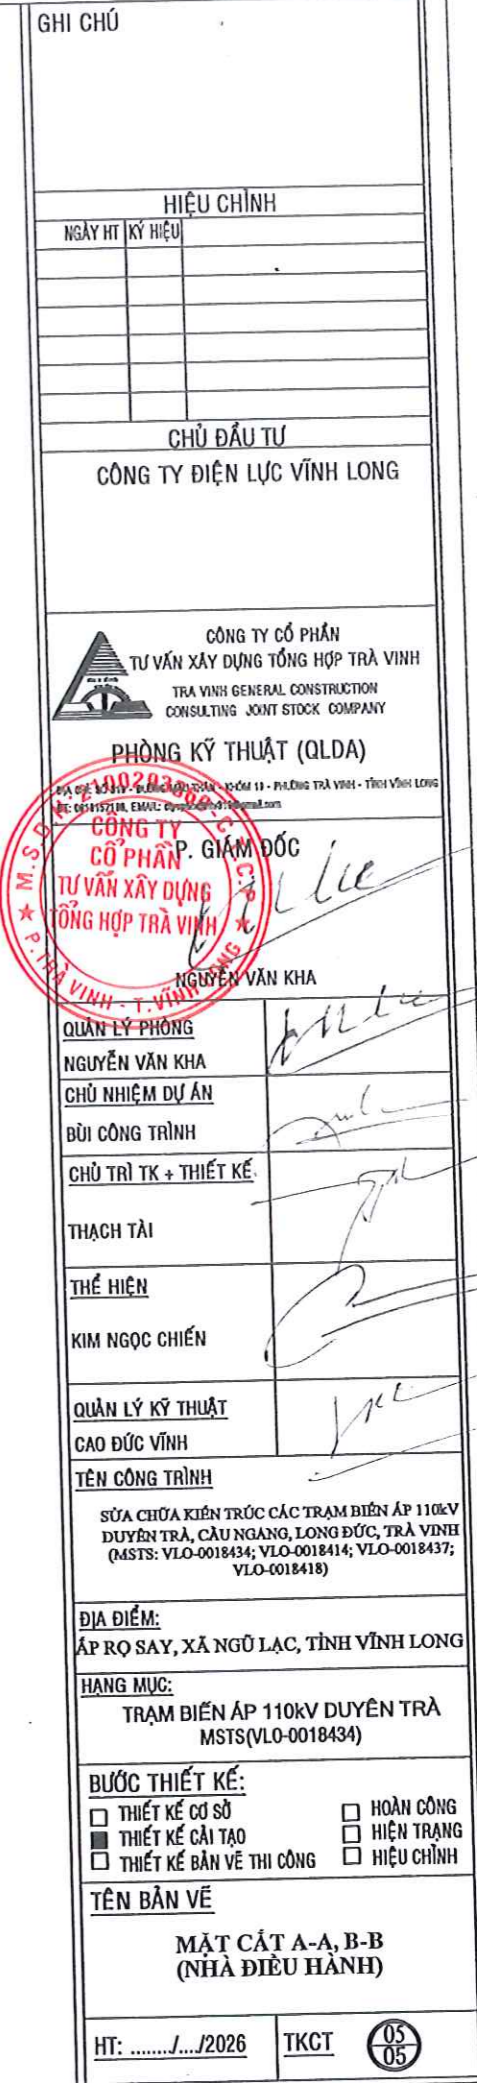 GHI CHÚ
HIỆU CHỈNH
NGÀY HT KÝ HIỆU
CHỦ ĐẦU TƯ
CÔNG TY ĐIỆN LỰC VĨNH LONG
CÔNG TY CỔ PHẦN
TƯ VẤN XÂY DỰNG TỔNG HỢP TRÀ VINH
TRA VINH GENERAL CONSTRUCTION
CONSULTING JOINT STOCK COMPANY
PHÒNG KỸ THUẬT (QLDA)
KHÓM 10 - PHƯỜNG TRÀ VINH - TỈNH VĨNH LONG
CÔNG TY
CỔ PHẦN
TƯ VẤN XÂY DỰNG
TỔNG HỢP TRÀ VINH
P. TRÀ VINH - T. VĨNH LONG
P. GIÁM ĐỐC
NGUYỄN VĂN KHA
QUẢN LÝ PHÒNG
NGUYỄN VĂN KHA
CHỦ NHIỆM DỰ ÁN
BÙI CÔNG TRÌNH
CHỦ TRÌ TK + THIẾT KẾ
THẠCH TÀI
THỂ HIỆN
KIM NGỌC CHIẾN
QUẢN LÝ KỸ THUẬT
CAO ĐỨC VĨNH
TÊN CÔNG TRÌNH
SỬA CHỮA KIẾN TRÚC CÁC TRẠM BIẾN ÁP 110kV
DUYÊN TRÀ, CẦU NGANG, LONG ĐỨC, TRÀ VINH
(MSTS: VLO-0018434; VLO-0018414; VLO-0018437;
VLO-0018418)
ĐỊA ĐIỂM:
ẤP RỌ SAY, XÃ NGŨ LẠC, TỈNH VĨNH LONG
HẠNG MỤC:
TRẠM BIẾN ÁP 110kV DUYÊN TRÀ
MSTS(VL0-0018434)
BƯỚC THIẾT KẾ:
THIẾT KẾ CƠ SỞ
THIẾT KẾ CẢI TẠO
THIẾT KẾ BẢN VẼ THI CÔNG
HOÀN CÔNG
HIỆN TRẠNG
HIỆU CHỈNH
TÊN BẢN VẼ
MẶT CẮT A-A, B-B
(NHÀ ĐIỀU HÀNH)
HT: ......../..../2026
TKCT
05
05